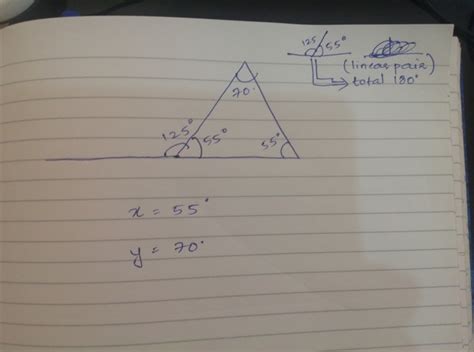 125 55°
(linear pair)
total 180°
70°
125° 55° 55°
x = 55°
y = 70°